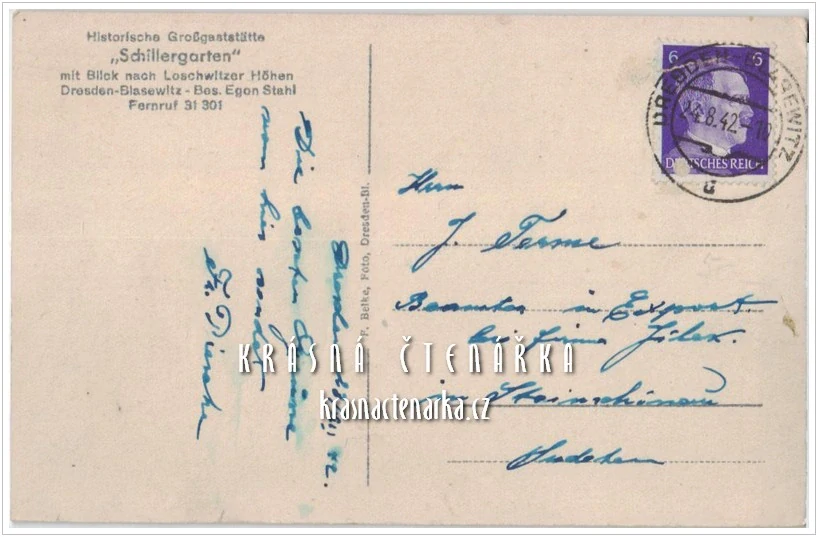 Historische Großgaststätte
„Schillergarten"
mit Blick nach Loschwitzer Höhen
Dresden-Blasewitz - Bes. Egon Stahl
Fernruf 31 301
6 6
DEUTSCHES REICH
DRESDEN-BLASEWITZ
24.8.42
F. Beike, Foto, Dresden-Bl.
Die besten Grüsse
von hier sendet
Herrn
J. Terme
Beamter in Export.
bei Firma Jílek.
in Steinschönau
Sudeten
KRÁSNÁ ČTENÁŘKA
krasnactenarka.cz